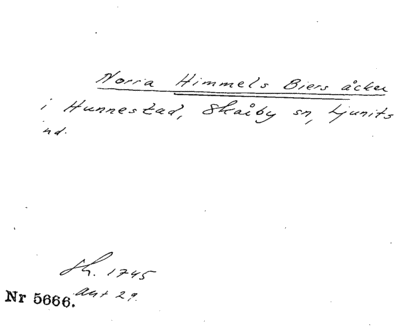 Norra Himmels Biers åcker
i Hunnestad, Skårby sn, Ljunits
hd.
Sk. 1745
akt 29.
Nr 5666.